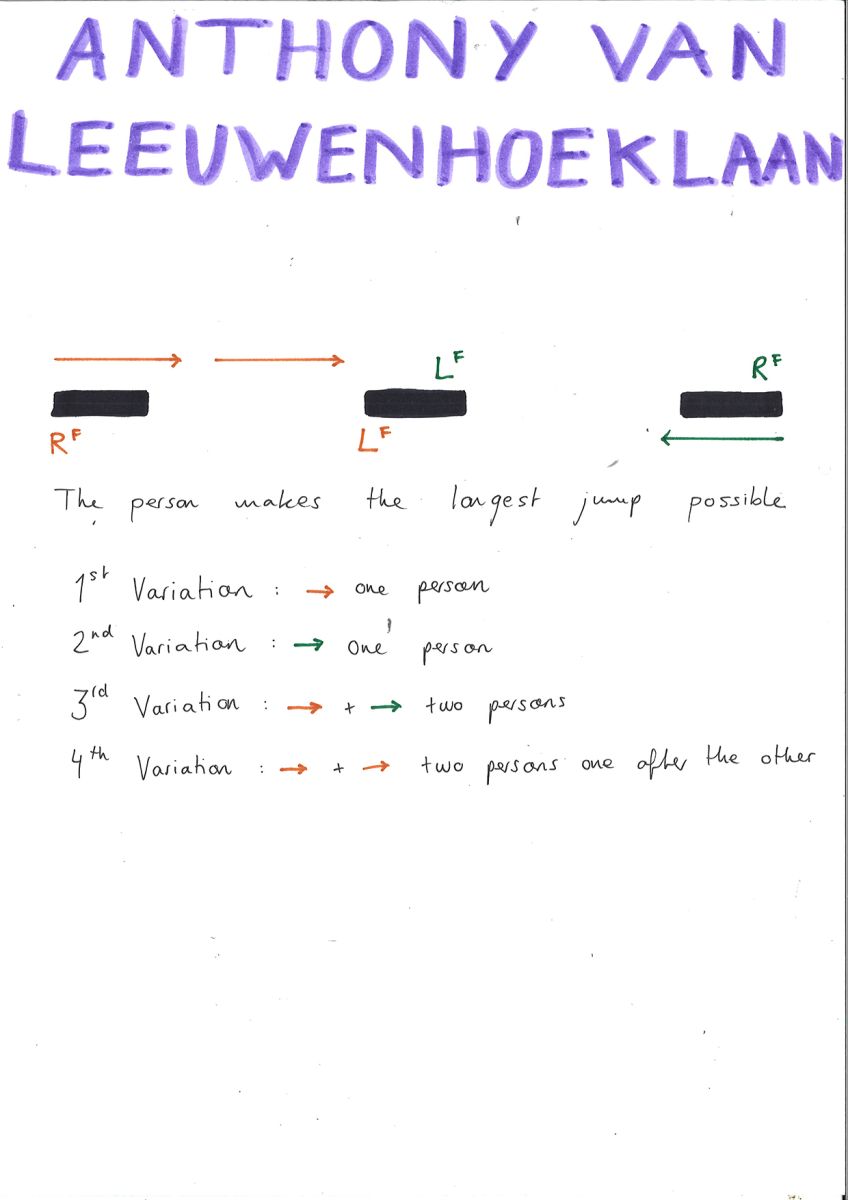 ANTHONY VAN
LEEUWENHOEKLAAN
L^F R^F
R^F L^F
The person makes the longest jump possible
1st Variation : → one person
2nd Variation : → one person
3rd Variation : → + → two persons
4th Variation : → + → two persons one after the other